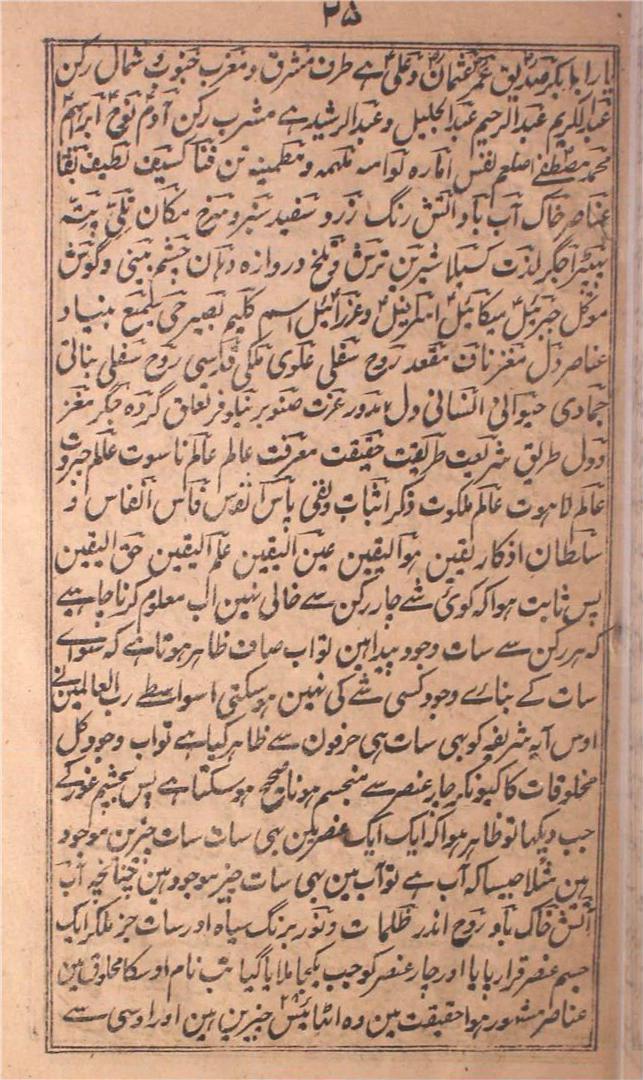 ۲۵
یارا بابکر صدیق عمر عثمان و علی ہے طرف مشرق و مغرب جنوب و شمال رکن
عبدالکریم عبدالرحیم عبدالجلیل و عبدالرشید ہے مشرب رکن آدم نوح ابراہیم
محمد مصطفے اصلعم نفس امارہ لوامہ ملہمہ و مطمینہ تن فنا کسیف لطیف بقا
عناصر خاک آب باد آتش رنگ زرد سفید سبز و سرخ مکان تلی پتہ
پیپڑا جگر لذت کسیلا شیرین ترش و تلخ دروازہ دہان چشم بینی و گوش
موکل جبرئیل میکائیل اسرافیل و عزرائیل اسم کلیم بصیر حی سمیع بنیاد
عناصر دل مغز ناف مقعد روح سفلی علوی ملکی قدسی روح سفلی بناتی
جمادی حیوانی انسانی دل مدور عزت صنوبر نیلوفر تعلق گردہ جگر مغز
و دل طریق شریعت طریقت حقیقت معرفت عالم عالم ناسوت عالم جبروت
عالم لاہوت عالم ملکوت ذکر اثبات و نفی پاس انفس فاس انفاس و
سلطان اذکار یقین ہوالیقین عین الیقین علم الیقین حق الیقین
پس ثابت ہوا کہ کوئی شے چار رکن سے خالی نہین اب معلوم کرنا چاہیے
کہ ہر رکن سے سات وجود پیدا ہین تو اب صاف ظاہر ہوتا ہے کہ سوائے
سات کے بنائے وجود کسی شے کی نہین ہو سکتی اسواسطے رب العالمین نے
اوس آیہ شریفہ کو بہی سات ہی حرفون سے ظاہر کیا ہے تو اب وجود کل
مخلوقات کا کیونکر چار عنصر سے منجسم ہونا صحیح ہو سکتا ہے پس بچشم غور کے
جب دیکہا تو ظاہر ہوا کہ ایک ایک عنصر مین بہی سات سات چیزین موجود
ہین مثلا جیسا کہ آب ہے تو آب مین بہی سات چیز موجود ہین چنانچہ آب
آتش خاک باد روح اندر ظلمات و نور برنگ سیاہ اور سات جز ملکر ایک
جسم عنصر قرار پایا اور چار عنصر کو جب یکجا ملایا گیا تب نام اوسکا مخلوق مین
عناصر مشہور ہوا حقیقت مین وہ اٹہائیس ۲۸ چیزین ہین اور اوسی سے